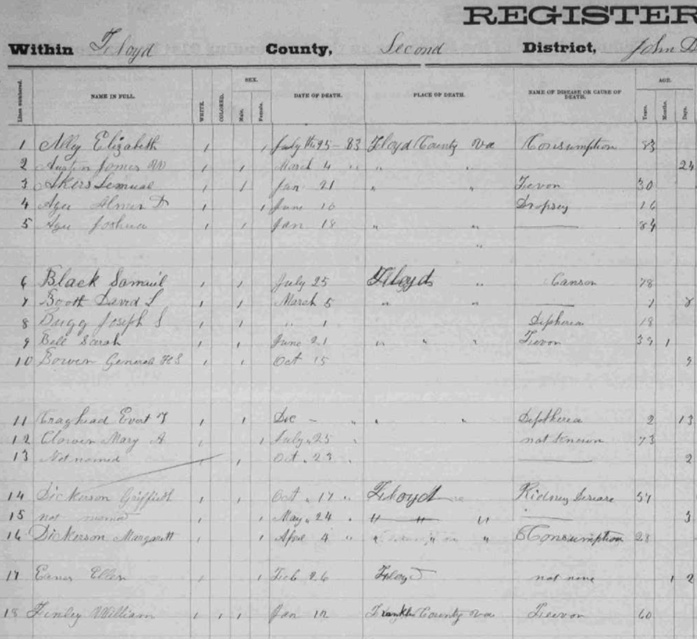 REGISTER
Within Floyd County, Second District, John D
Lines numbered. NAME IN FULL. WHITE. COLORED. SEX. Male. Female. DATE OF DEATH. PLACE OF DEATH. NAME OF DISEASE OR CAUSE OF DEATH. AGE. Years. Months. Days.
1 Ally Elizabeth July 25 - 83 Floyd County Va Consumption 83
2 Austin James W March 4 " " " 24
3 Akers Lemuel Jan 21 " " Fevor 30
4 Agee June 16 Dropsey 16
5 Agee Joshua Jan 18 " " 84
"
6 Black Samuel July 25 Floyd " Canson 78
7 Boott David L March 5 " " 1 8
8 Joseph S " 1 Diptheria 18
9 Bell Sarah June 21 " " " Fevor 39 1
10 Bower General H S Oct 15 9
11 Craghead T Dec - " " " Diptheria 2 13
12 Clower Mary A July 25 " not known 73
13 Not named Oct 23 " 2
14 Dickerson Griffieth Oct 17 " Floyd Kidney Disease 57
15 not named May 24 " " " " 3
16 Dickerson Margarett April 4 " " " " Consumption 23
17 Ellen Feb 26 Floyd not none 1 2
18 Finley William Jan 12 Franklin County Va Fevor 60